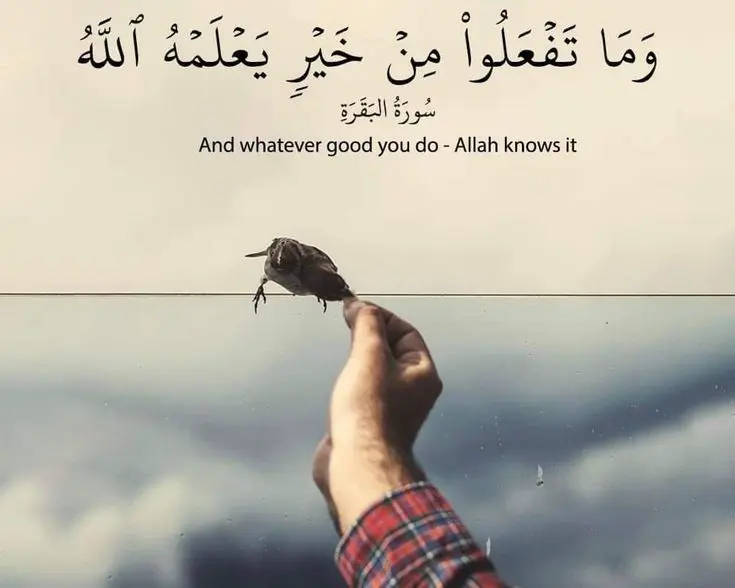 وَمَا تَفْعَلُوا۟ مِنْ خَيْرٍ يَعْلَمْهُ ٱللَّهُ
سُورَةُ البَقَرَةِ
And whatever good you do - Allah knows it